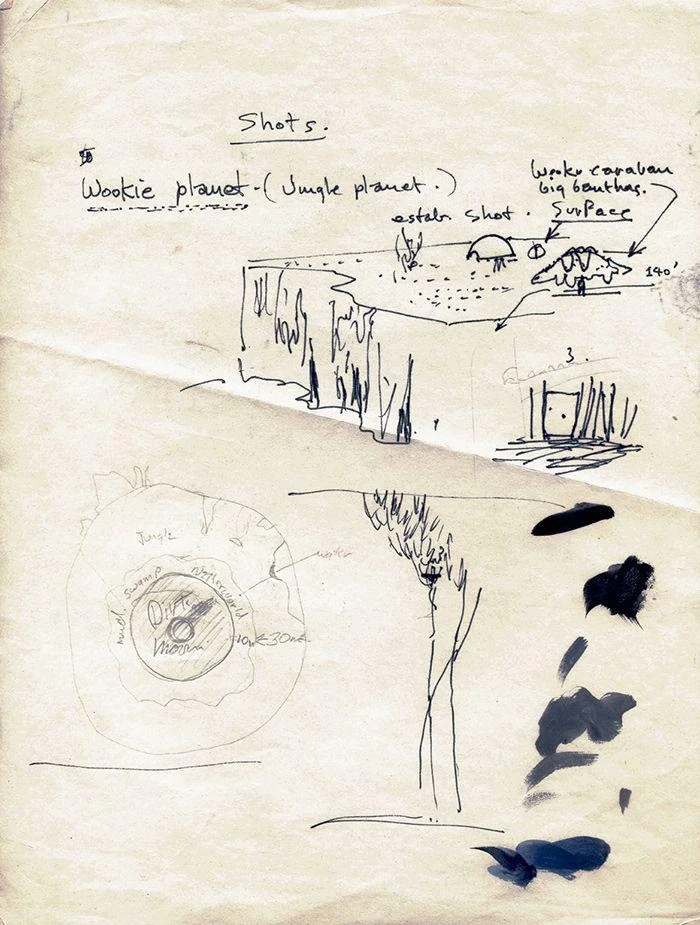 Shots.
Wookie planet - (Jungle planet.)
Wooki caravan
big banthas.
estabr. Shot.
Surface
1
140'
3.
Jungle
water
mud swamp netherworld